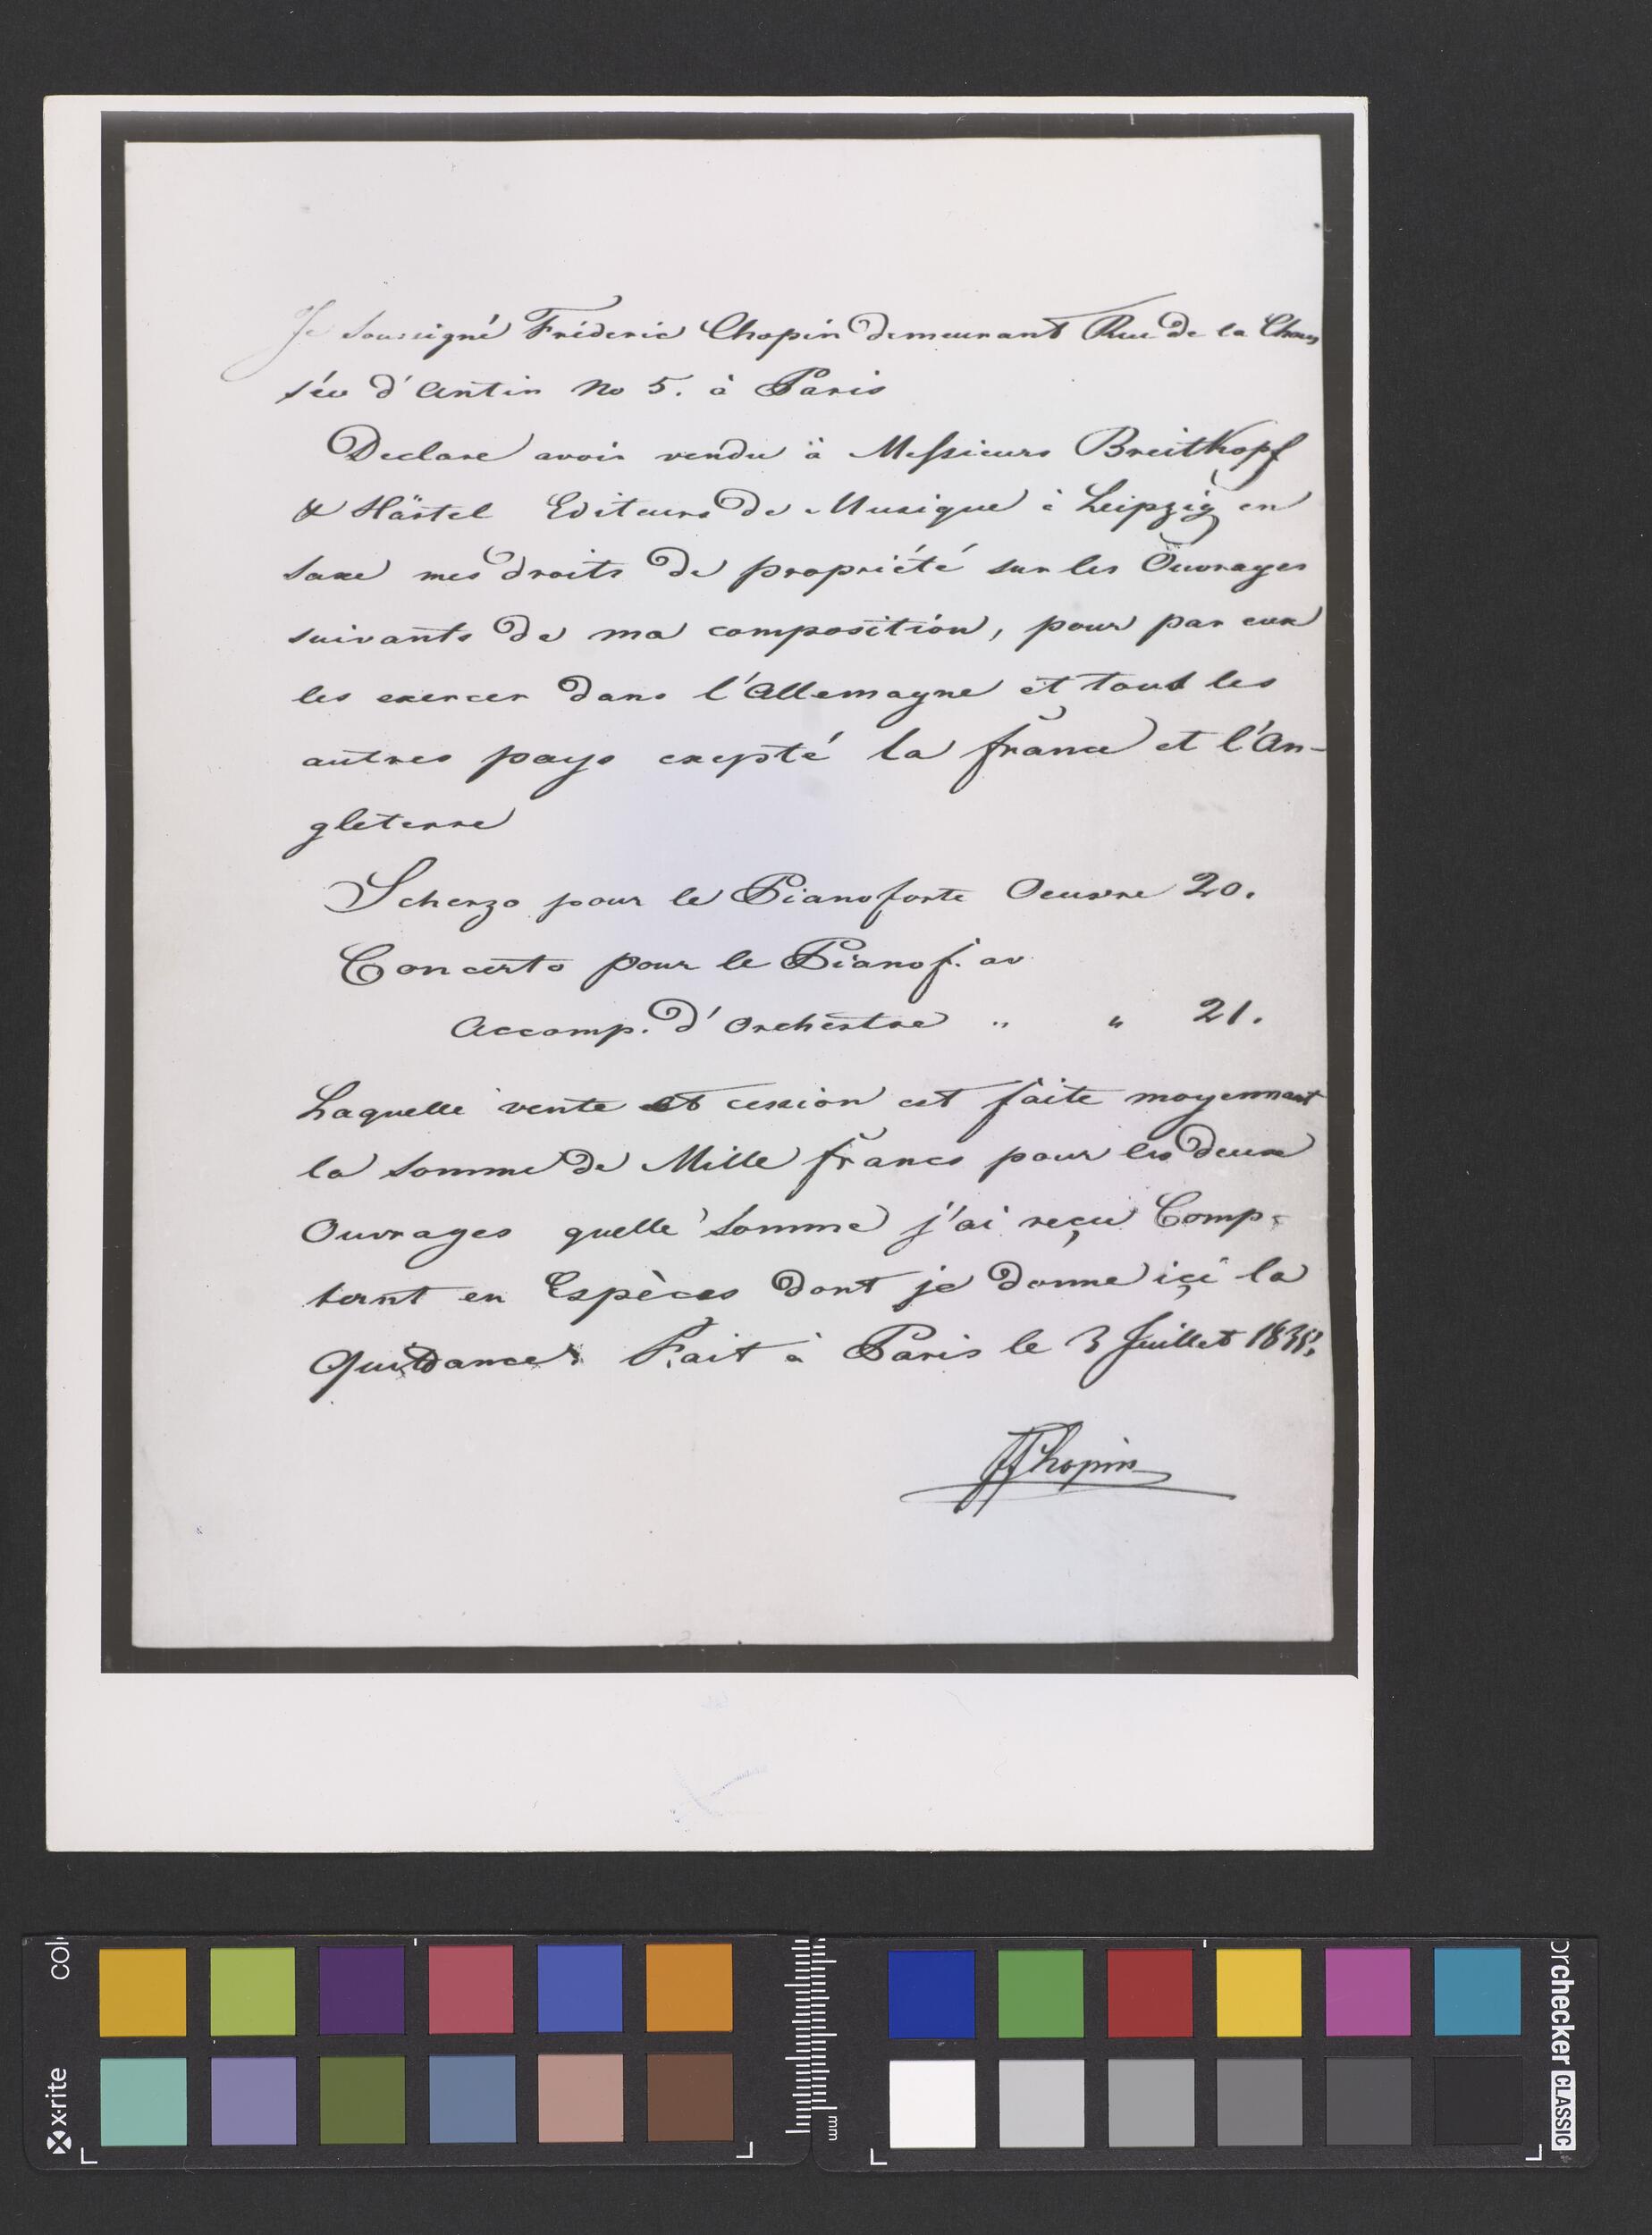 Je soussigné Fréderic Chopin demeurant Rue de la Chaus
sée d'Antin No 5. à Paris
Declare avoir vendu à Messieurs Breitkopf
& Härtel Editeurs de Musique à Leipzig en
saxe mes droits de propriété sur les Ouvrages
suivants de ma composition, pour par eux
les exercer dans l'Allemagne et tout les
autres pays exepté la france et l'An-
gleterre
Scherzo pour le Pianoforte Oeuvre 20.
Concerto pour le Pianof. av
Accomp. d'Orchestre " " 21.
Laquelle vente et cession est faite moyennant
la somme de Mille francs pour les deux
Ouvrages quelle somme j'ai reçu Comp-
tant en Espèces dont je donne içi la
Quittance. Fait à Paris le 3 Juillet
FFChopin
x·rite
col
mm
orchecker CLASSIC